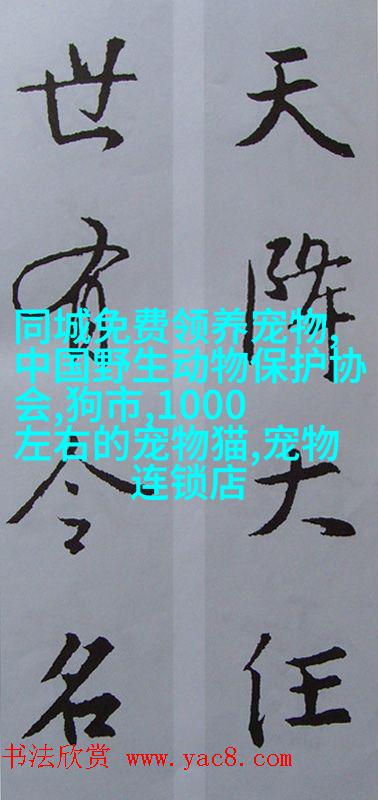 天降大任
世有令名
同城免费领养宠物,
中国野生动物保护协
会,狗市,1000
左右的宠物猫,宠物
连锁店
书法欣赏 www.yac8.com